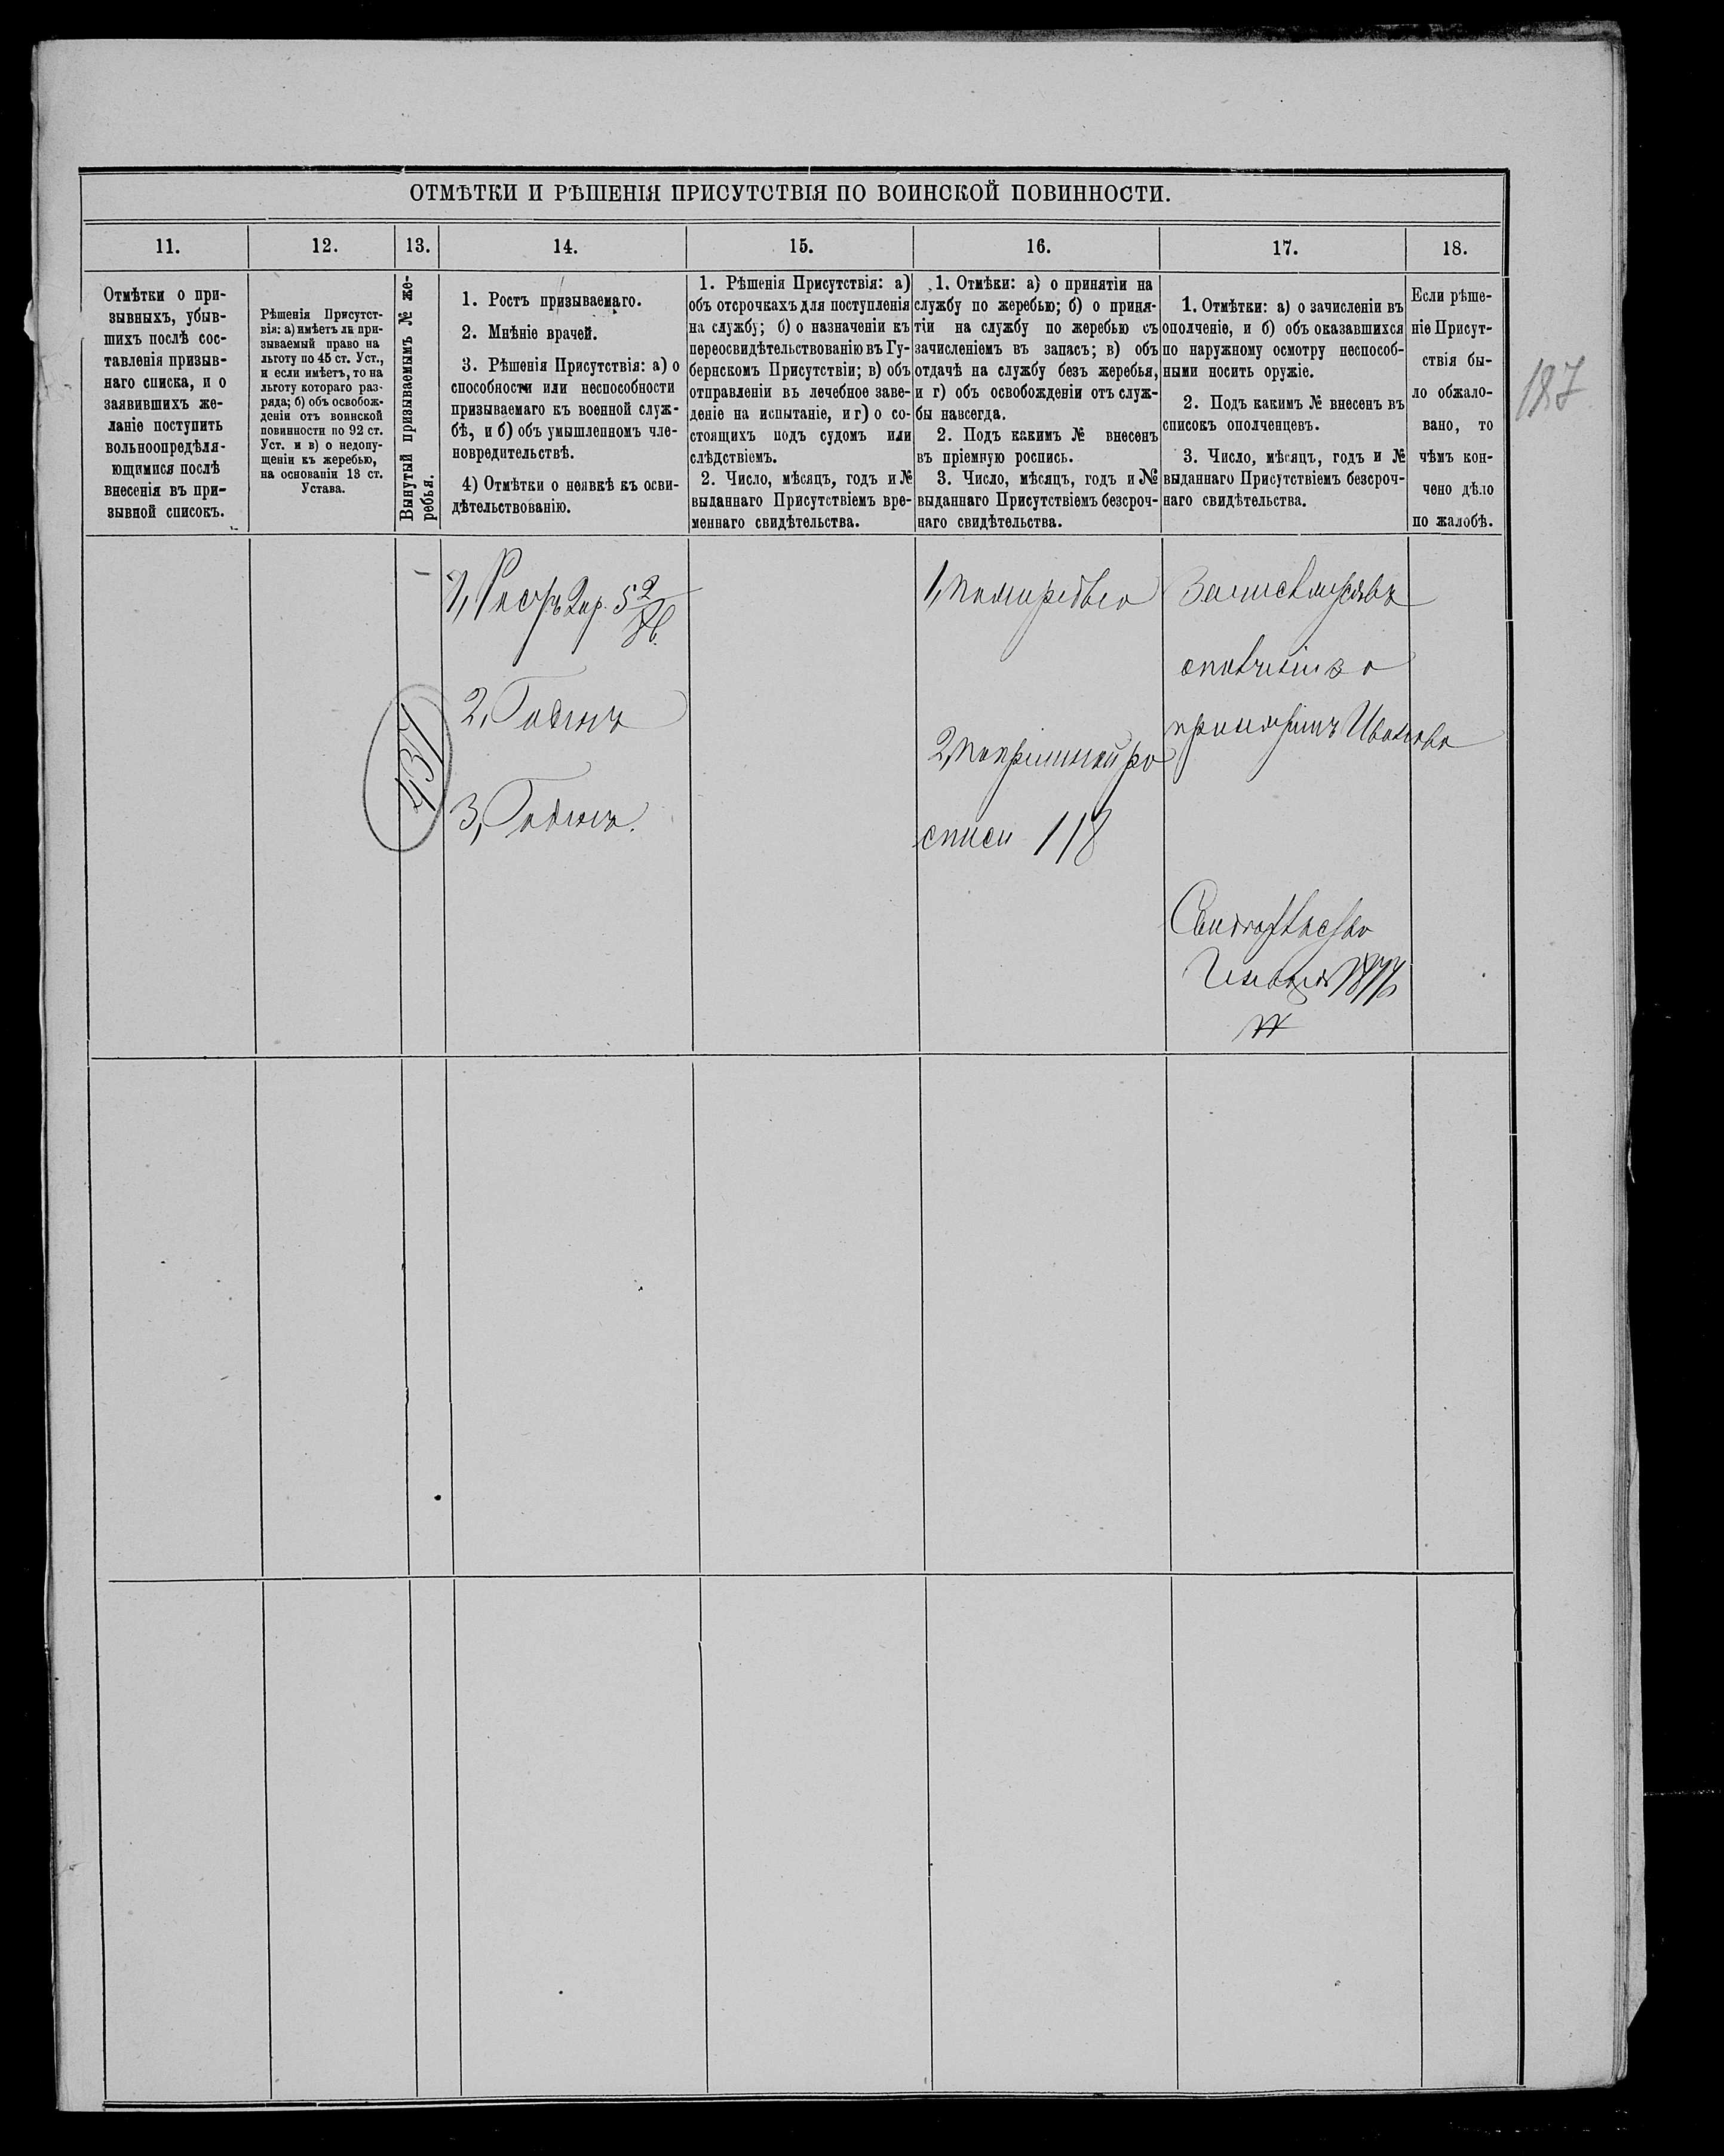 ОТМѢТКИ И РѢШЕНІЯ ПРИСУТСТВІЯ ПО ВОИНСКОЙ ПОВИННОСТИ.
11.
12.
13.
14.
15.
16.
17.
18.
Отмѣтки о при-
зывныхъ, убыв-
шихъ послѣ сос-
тавленія призыв-
наго списка, и о
заявившихъ же-
ланіе поступить
вольноопредѣля-
ющимися послѣ
внесенія въ при-
зывной списокъ.
Рѣшенія Присутст-
вія: а) имѣетъ ли при-
зываемый право на
льготу по 45 ст. Уст.,
и если имѣетъ, то на
льготу котораго раз-
ряда; б) объ освобож-
деніи отъ воинской
повинности по 92 ст.
Уст. и в) о недопу-
щеніи къ жеребью,
на основаніи 13 ст.
Устава.
Вынутый призываемымъ № же-
ребья.
1. Ростъ призываемаго.
2. Мнѣніе врачей.
3. Рѣшенія Присутствія: а) о
способности или неспособности
призываемаго къ военной служ-
бѣ, и б) объ умышленномъ чле-
новредительствѣ.
4) Отмѣтки о неявкѣ къ осви-
дѣтельствованію.
1. Рѣшенія Присутствія: а)
объ отсрочкахъ для поступленія
на службу; б) о назначеніи къ
переосвидѣтельствованію въ Гу-
бернскомъ Присутствіи; в) объ
отправленіи въ лечебное заве-
деніе на испытаніе, и г) о со-
стоящихъ подъ судомъ или
слѣдствіемъ.
2. Число, мѣсяцъ, годъ и №
выданнаго Присутствіемъ вре-
меннаго свидѣтельства.
1. Отмѣки: а) о принятіи на
службу по жеребью; б) о приня-
тіи на службу по жеребью съ
зачисленіемъ въ запасъ; в) объ
отдачѣ на службу безъ жеребья,
и г) объ освобожденіи отъ служ-
бы навсегда.
2. Подъ какимъ № внесенъ
въ пріемную роспись.
3. Число, мѣсяцъ, годъ и №
выданнаго Присутствіемъ безсроч-
наго свидѣтельства.
1. Отмѣтки: а) о зачисленіи въ
ополченіе, и б) объ оказавшихся
по наружному осмотру неспособ-
ными носить оружіе.
2. Подъ какимъ № внесенъ въ
списокъ ополченцевъ.
3. Число, мѣсяцъ, годъ и №
выданнаго Присутствіемъ безсроч-
наго свидѣтельства.
Если рѣше-
ніе Присут-
ствія бы-
ло обжало-
вано, то
чѣмъ кон-
чено дѣло
по жалобѣ.
187
437
1, Ростъ 2 ар. 5 2/8 в.
2, Годенъ
3, Годенъ.
1, По жеребью
2, По пріемной ро
списи 118
Свидѣтельство
Января 1877
№